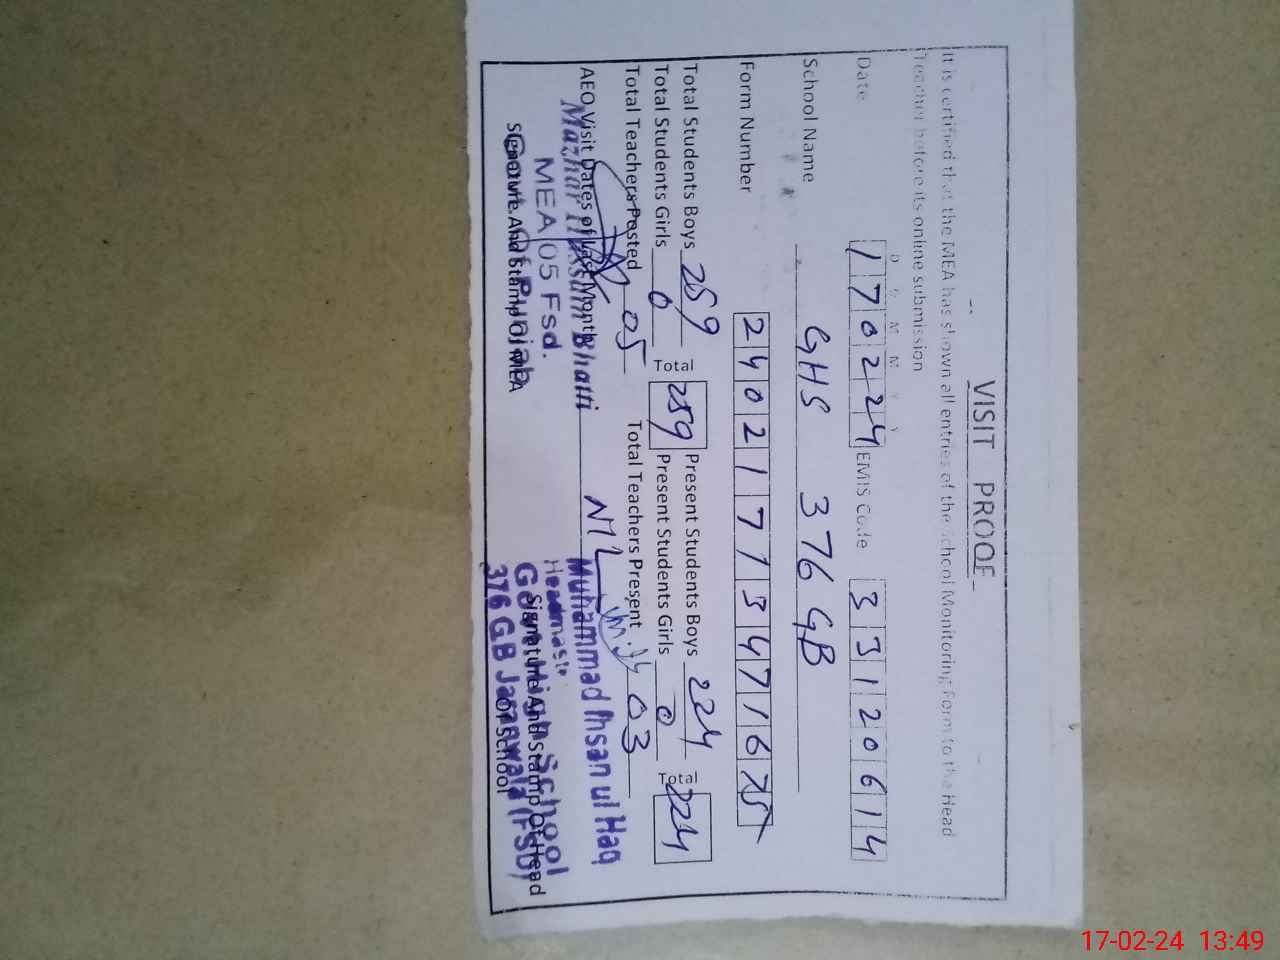 VISIT PROOF
It is certified that the MEA has shown all entries of the School Monitoring Form to the Head
Teacher before its online submission
D D M M Y Y
Date 170224 EMIS Code 33120614
School Name GHS 376 GB
Form Number 24021713471625
Total Students Boys 259 Present Students Boys 224
Total 259 Total 224
Total Students Girls 0 Present Students Girls 0
Total Teachers Posted 05 Total Teachers Present 03
AEO Visit Dates of Last Month NIL
Mazhar Hussain Bhatti
MEA 05 Fsd.
Govt. Of Punjab
Signature And Stamp Of MEA
Muhammad Ihsan ul Haq
Headmaster
Govt. High School
376 GB Jaranwala (FSD)
Signature And Stamp Of Head
Of School
17-02-24 13:49